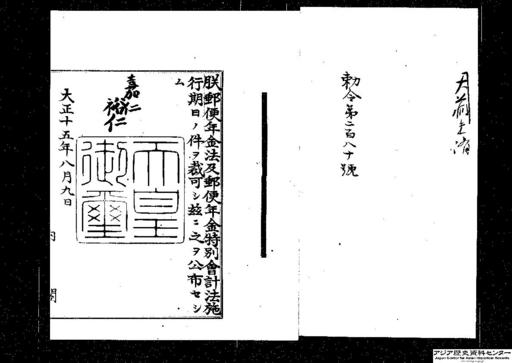 勅令第二百八十號
朕郵便年金法及郵便年金特別會計法施
行期日ノ件ヲ裁可シ茲ニ之ヲ公布セシ
ム
嘉仁
裕仁
天皇
御璽
大正十五年八月九日
内閣
アジア歴史資料センター
Japan Center for Asian Historical Records